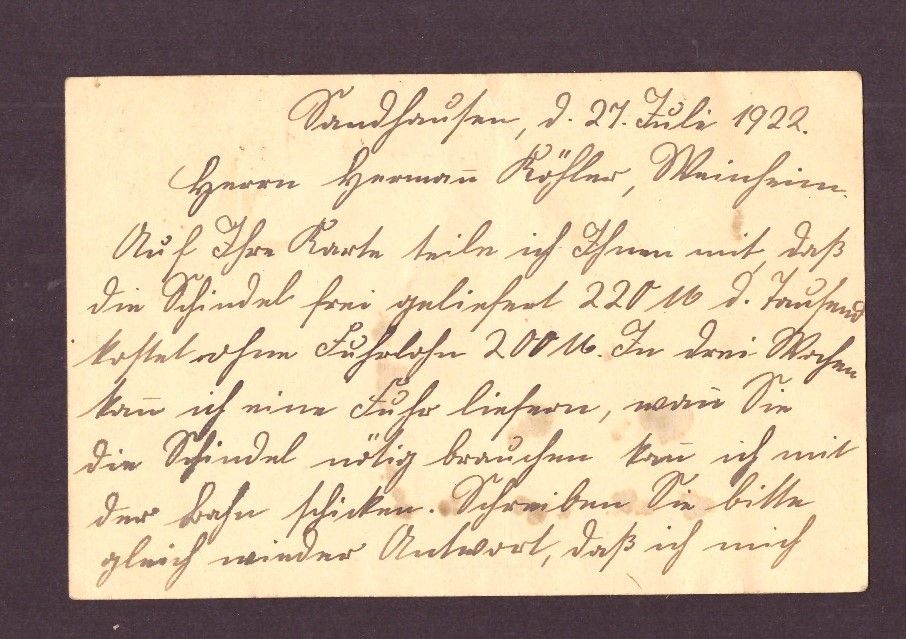 Sandhausen, d. 27. Juli 1922.
Herrn Hermann Köhler, Weinheim.
Auf Ihre Karte teile ich Ihnen mit, daß
die Schindel frei geliefert 220 M d. Tausend
kostet ohne Fuhrlohn 200 M. In drei Wochen
kan̅ ich eine Fuhr liefern, wan̅ Sie
die Schindel nötig brauchen kan̅ ich mit
der Bahn schicken. Schreiben Sie bitte
gleich wieder Antwort, daß ich mich